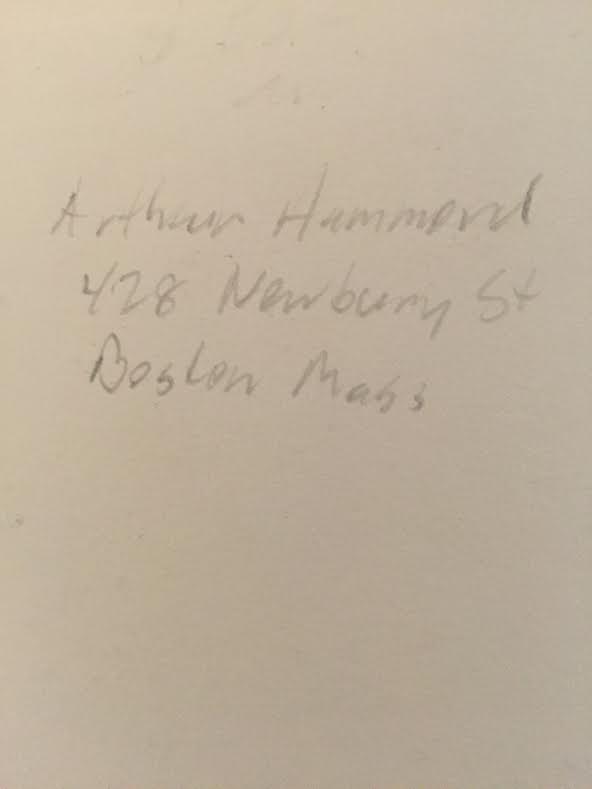 Arthur Hammond
428 Newbury St
Boston Mass